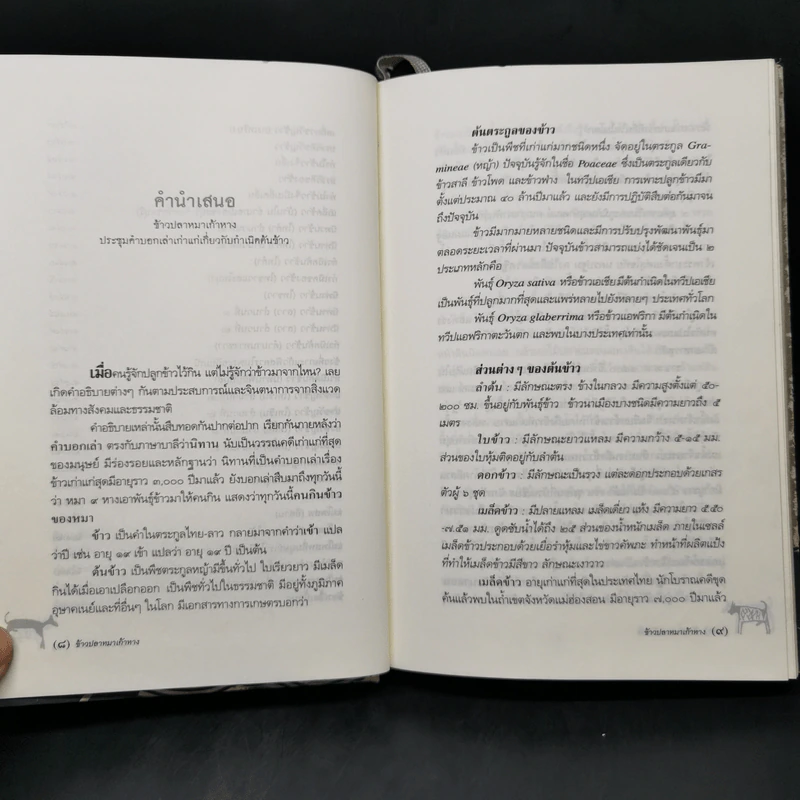 คำนำเสนอ
ข้าวปลาหมาเก้าหาง
ประชุมคำบอกเล่าเก่าแก่เกี่ยวกับกำเนิดต้นข้าว
เมื่อคนรู้จักปลูกข้าวไว้กิน แต่ไม่รู้จักว่าข้าวมาจากไหน? เลย
เกิดคำอธิบายต่างๆ กันตามประสบการณ์และจินตนาการจากสิ่งแวด
ล้อมทางสังคมและธรรมชาติ
คำอธิบายเหล่านั้นสืบทอดกันปากต่อปาก เรียกกันภายหลังว่า
คำบอกเล่า ตรงกับภาษาบาลีว่านิทาน นับเป็นวรรณคดีเก่าแก่ที่สุด
ของมนุษย์ มีร่องรอยและหลักฐานว่า นิทานที่เป็นคำบอกเล่าเรื่อง
ข้าวเก่าแก่ที่สุดมีอายุราว ๓,๐๐๐ ปีมาแล้ว ยังบอกเล่าสืบมาถึงทุกวันนี้
ว่า หมา ๙ หางเอาพันธุ์ข้าวมาให้คนกิน แสดงว่าทุกวันนี้คนกินข้าว
ของหมา
ข้าว เป็นคำในตระกูลไทย-ลาว กลายมาจากคำว่าเข้า แปล
ว่าปี เช่น อายุ ๑๙ เข้า แปลว่า อายุ ๑๙ ปี เป็นต้น
ต้นข้าว เป็นพืชตระกูลหญ้ามีขึ้นทั่วไป ใบเรียวยาว มีเมล็ด
กินได้เมื่อเอาเปลือกออก เป็นพืชทั่วไปในธรรมชาติ มีอยู่ทั้งภูมิภาค
อุษาคเนย์และที่อื่นๆ ในโลก มีเอกสารทางการเกษตรบอกว่า
(๘) ข้าวปลาหมาเก้าหาง
ต้นตระกูลของข้าว
ข้าวเป็นพืชที่เก่าแก่มากชนิดหนึ่ง จัดอยู่ในตระกูล Gra-
mineae (หญ้า) ปัจจุบันรู้จักในชื่อ Poaceae ซึ่งเป็นตระกูลเดียวกับ
ข้าวสาลี ข้าวโพด และข้าวฟ่าง ในทวีปเอเชีย การเพาะปลูกข้าวมีมา
ตั้งแต่ประมาณ ๔๐ ล้านปีมาแล้ว และยังมีการปฏิบัติสืบต่อกันมาจน
ถึงปัจจุบัน
ข้าวมีมากมายหลายชนิดและมีการปรับปรุงพัฒนาพันธุ์มา
ตลอดระยะเวลาที่ผ่านมา ปัจจุบันข้าวสามารถแบ่งได้ชัดเจนเป็น ๒
ประเภทหลักคือ
พันธุ์ Oryza sativa หรือข้าวเอเชียมีต้นกำเนิดในทวีปเอเชีย
เป็นพันธุ์ที่ปลูกมากที่สุดและแพร่หลายไปยังหลายๆ ประเทศทั่วโลก
พันธุ์ Oryza glaberrima หรือข้าวแอฟริกา มีต้นกำเนิดใน
ทวีปแอฟริกาตะวันตก และพบในบางประเทศเท่านั้น
ส่วนต่างๆ ของต้นข้าว
ลำต้น : มีลักษณะตรง ข้างในกลวง มีความสูงตั้งแต่ ๕๐-
๒๐๐ ซม. ขึ้นอยู่กับพันธุ์ข้าว ข้าวนาเมืองบางชนิดมีความยาวถึง ๕
เมตร
ใบข้าว : มีลักษณะยาวแหลม มีความกว้าง ๕-๑๕ มม.
ส่วนของใบหุ้มติดอยู่กับลำต้น
ดอกข้าว : มีลักษณะเป็นรวง แต่ละดอกประกอบด้วยเกสร
ตัวผู้ ๖ ชุด
เมล็ดข้าว : มีปลายแหลม เมล็ดเดี่ยว แห้ง มีความยาว ๕.๕๐
-๗.๕๑ มม. ดูดซับน้ำได้ถึง ๒๕ ส่วนของน้ำหนักเมล็ด ภายในเซลล์
เมล็ดข้าวประกอบด้วยเยื่อรำหุ้มและไข่ขาวคัพภะ ทำหน้าที่ผลิตแป้ง
ที่ทำให้เมล็ดข้าวมีสีขาว ลักษณะเงาวาว
เมล็ดข้าว อายุเก่าแก่ที่สุดในประเทศไทย นักโบราณคดีขุด
ค้นแล้วพบในถ้ำเขตจังหวัดแม่ฮ่องสอน มีอายุราว ๗,๐๐๐ ปีมาแล้ว
ข้าวปลาหมาเก้าหาง (๙)